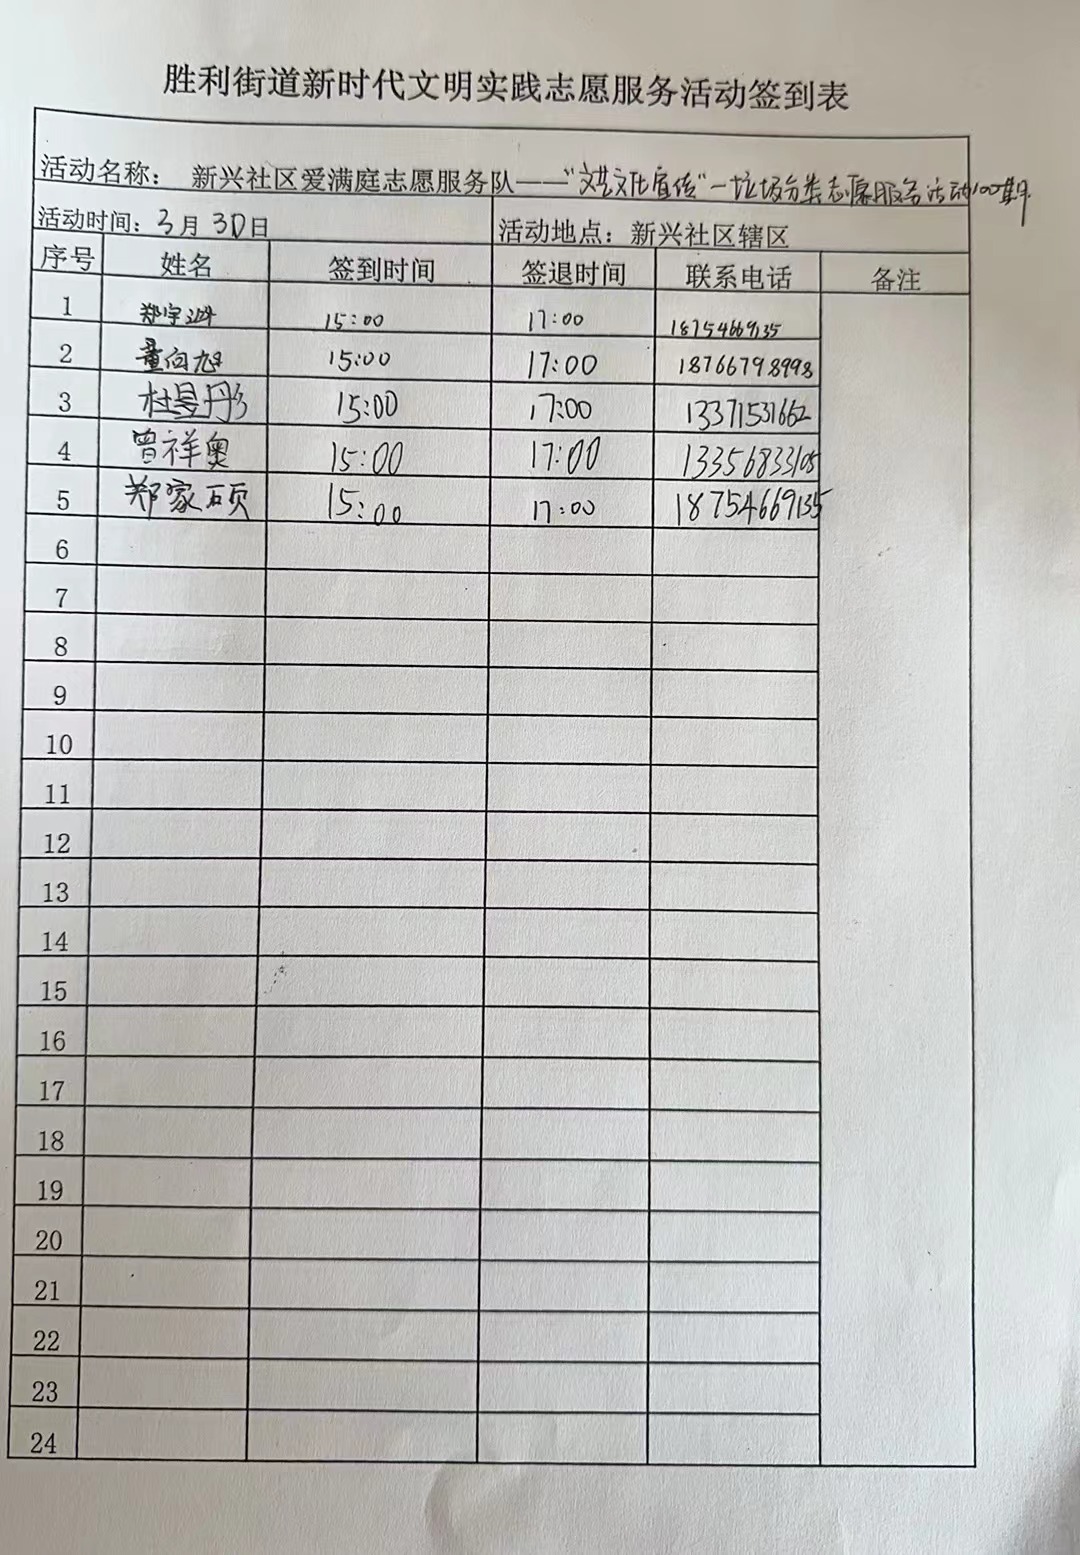 胜利街道新时代文明实践志愿服务活动签到表
活动名称： 新兴社区爱满庭志愿服务队——“文艺文化宣传”一垃圾分类志愿服务活动100期
活动时间：3月30日 活动地点：新兴社区辖区
序号 姓名 签到时间 签退时间 联系电话 备注
1 郑宇 15:00 17:00 18754669135
2 董向旭 15:00 17:00 18766798998
3 杜昱彤 15:00 17:00 13371531662
4 曾祥奥 15:00 17:00 13356833105
5 郑家硕 15:00 17:00 18754669135
6
7
8
9
10
11
12
13
14
15
16
17
18
19
20
21
22
23
24